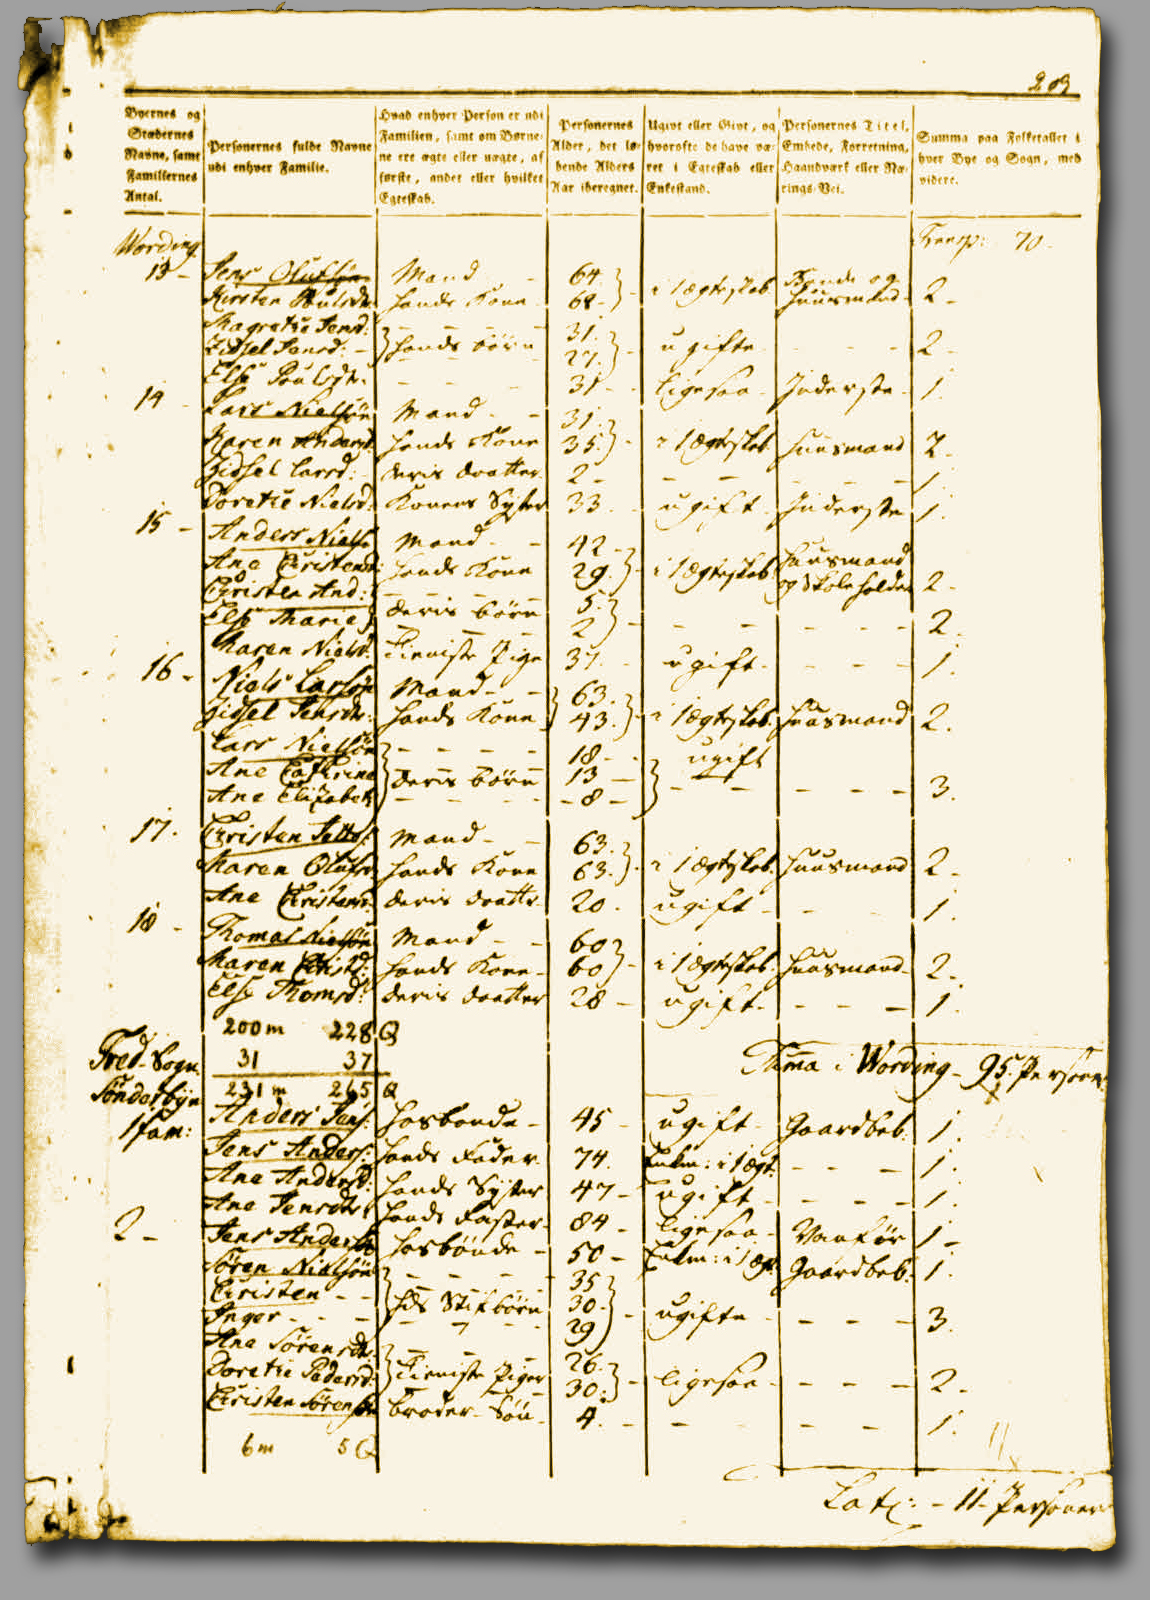 203
Byernes og Stædernes Navne, samt Familiernes Antal.
Personernes fulde Navne udi enhver Familie.
Hvad enhver Person er udi Familien, samt om Børnene ere ægte eller uægte, af første, andet eller hvilket Egteskab.
Personernes Alder, det løbende Alders Aar iberegnet.
Ugivt eller Givt, og hvorofte de have været i Egteskab eller Enkestand.
Personernes Titel, Embede, Forretning, Haandværk eller Nærings-Vei.
Summa paa Folketallet i hver Bye og Sogn, med videre.
Wording Transp: 70-
13 - Jens Olufsøn Mand - - 64 i 1 Ægteskab Bonde og Huusmand 2 -
Kirsten Poulsdr. hands Kone 68
Magrete Jensd: hands børn 31. ugifte - - - 2 -
Zidsel Jensd: - 27.
Else Poulsdr. - - - 31 - ligesaa - Inderste - 1.
14 - Lars Nielsøn Mand - - 31. i 1 Ægteskab Huusmand 2 -
Karen Andersd. hands Kone 35.
Zidsel Larsd: deris daatter 2 - - - - - 1.
Doretie Nielsd. Konens Syster 33 ugift Inderste 1.
15 - Anders Niels. Mand - - 42 - i 1 Ægteskab Huusmand og Skoleholder 2 -
Ane Christensd: hands Kone 29.
Christen And: deris børn 5. - - - - - 2.
Else Marie 2
Maren Nielsd. Tieniste Pige 37. ugift - - - - 1.
16 - Niels Larsøn Mand - - 63. i 1 Ægteskab. Huusmand 2.
Zidsel Jensdr. hands Kone 43.
Lars Nielsøn deris børn 18 - ugift
Ane Cathrine 13 -
Ane Elizabet - 8 - - - - - - 3.
17. Christen Jens: Mand - - 63. i 1 Ægteskab. Huusmand 2 -
Maren Olufsd. hands Kone 63.
Ane Christensd. deris daatter 20. ugift - - - 1.
18 - Thomas Nielsøn Mand - - 60 i 1 Ægteskab. Huusmand - 2 -
Maren Christd: hands Kone - 60
Else Thomsd: deris daatter 28 - ugift - - - - 1.
200 m 228 Q
31 37
231 m 265 Q
Suma i Wording - 95. Personer
Fred- Sogn.
Sønderbye
1 fam: Anders Jens: hosbonde - 45 - ugift - Gaardbeb. 1.
Jens Anders: hands Fader 74. Enkm: i 1 Ægt. - - - 1.
Ane Andersd: hands Syster 47 - ugift - - - - 1.
Ane Jensdr. hands Faster - 84 - ligesaa - Vanfør 1 -
2 - Jens Andersøn hosbonde - 50 - Enkm: i 1 Æg. Gaardbeb. 1.
Søren Nielsøn hds Stifbørn 35 ugifte - - - - 3.
Christen - - 30.
Inger - - - 29
Ane Sørensdr. Tieniste Piger 26. ligesaa - - - - 2 -
Doretie Pedersd. 30.
Christen Sørensøn broder Søn - 4. - - - - 1.
6 m 5 Q
11
Lat: - 11 - Personer